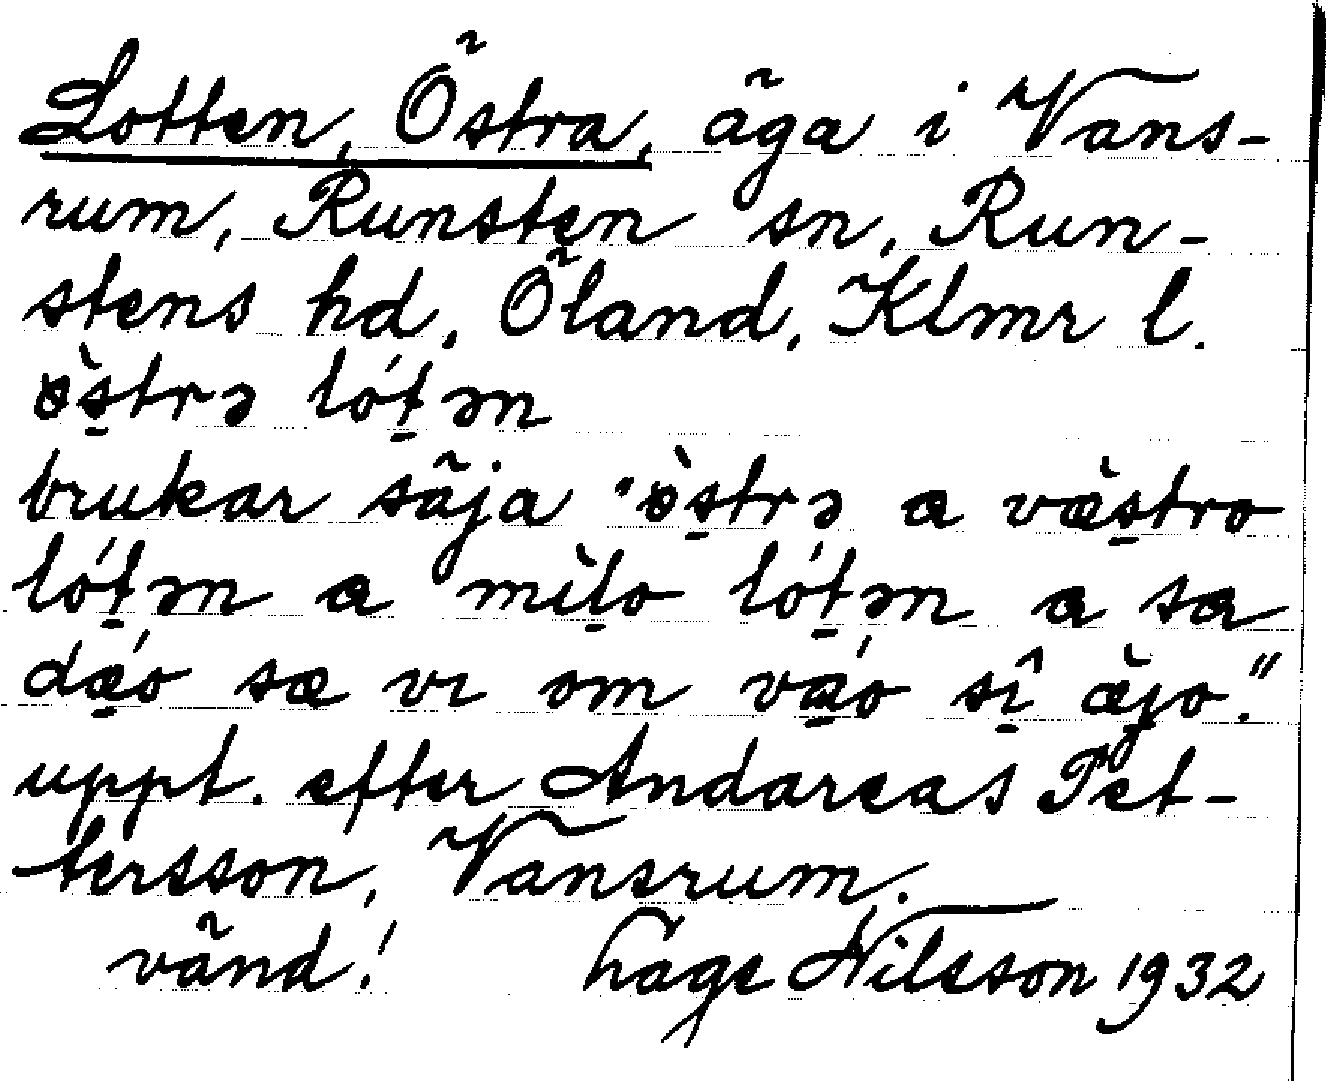 Lotten, Östra, äga i Vans-
rum, Runsten sn, Run-
stens hd, Öland, Klmr l.
ɵ̀s̱trə lót̠ən
brukar säja "ɵ̀s̱trə a væ̀s̱tro
lót̠ən a mìḻo lót̠ən a sa
dǽ̱o sæ vɪ om vǽ̱o sî̱ æ̀jo."
uppt. efter Andareas Pet-
tersson, Vansrum.
vänd! Hage Nilsson 1932